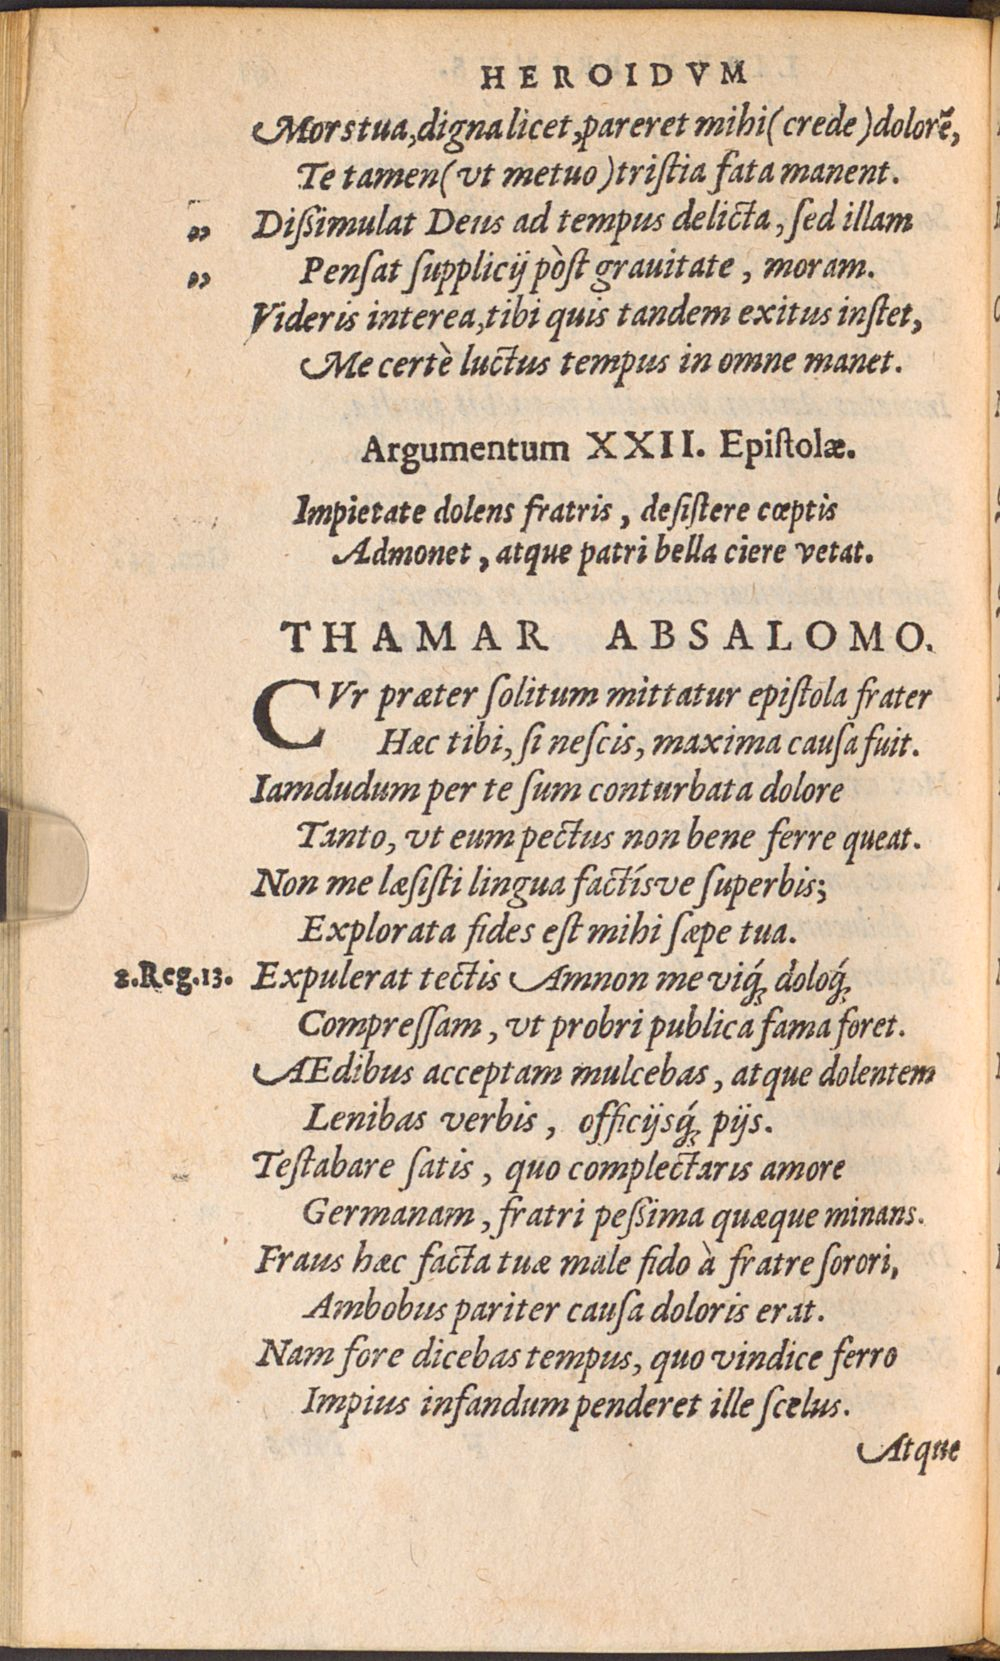 HEROIDVM
Mors tua, digna licet, pareret mihi (crede) dolorẽ,
Te tamen (vt metuo) tristia fata manent.
„ Dissimulat Deus ad tempus delicta, sed illam
„ Pensat supplicij pòst grauitate, moram.
Videris interea, tibi quis tandem exitus instet,
Me certè luctus tempus in omne manet.
Argumentum XXII. Epistolæ.
Impietate dolens fratris, desistere cœptis
Admonet, atque patri bella ciere vetat.
THAMAR ABSALOMO.
CVr præter solitum mittatur epistola frater
Hæc tibi, si nescis, maxima causa fuit.
Iamdudum per te sum conturbata dolore
Tanto, vt eum pectus non bene ferre queat.
Non me læsisti lingua factísve superbis;
Explorata fides est mihi sæpe tua.
2.Reg.13. Expulerat tectis Amnon me viq́; doloq́;
Compressam, vt probri publica fama foret.
AEdibus acceptam mulcebas, atque dolentem
Lenibas verbis, officijsq́; pijs.
Testabare satis, quo complectaris amore
Germanam, fratri pessima quæque minans.
Fraus hæc facta tuæ male fido à fratre sorori,
Ambobus pariter causa doloris erat.
Nam fore dicebas tempus, quo vindice ferro
Impius infandum penderet ille scelus.
Atque